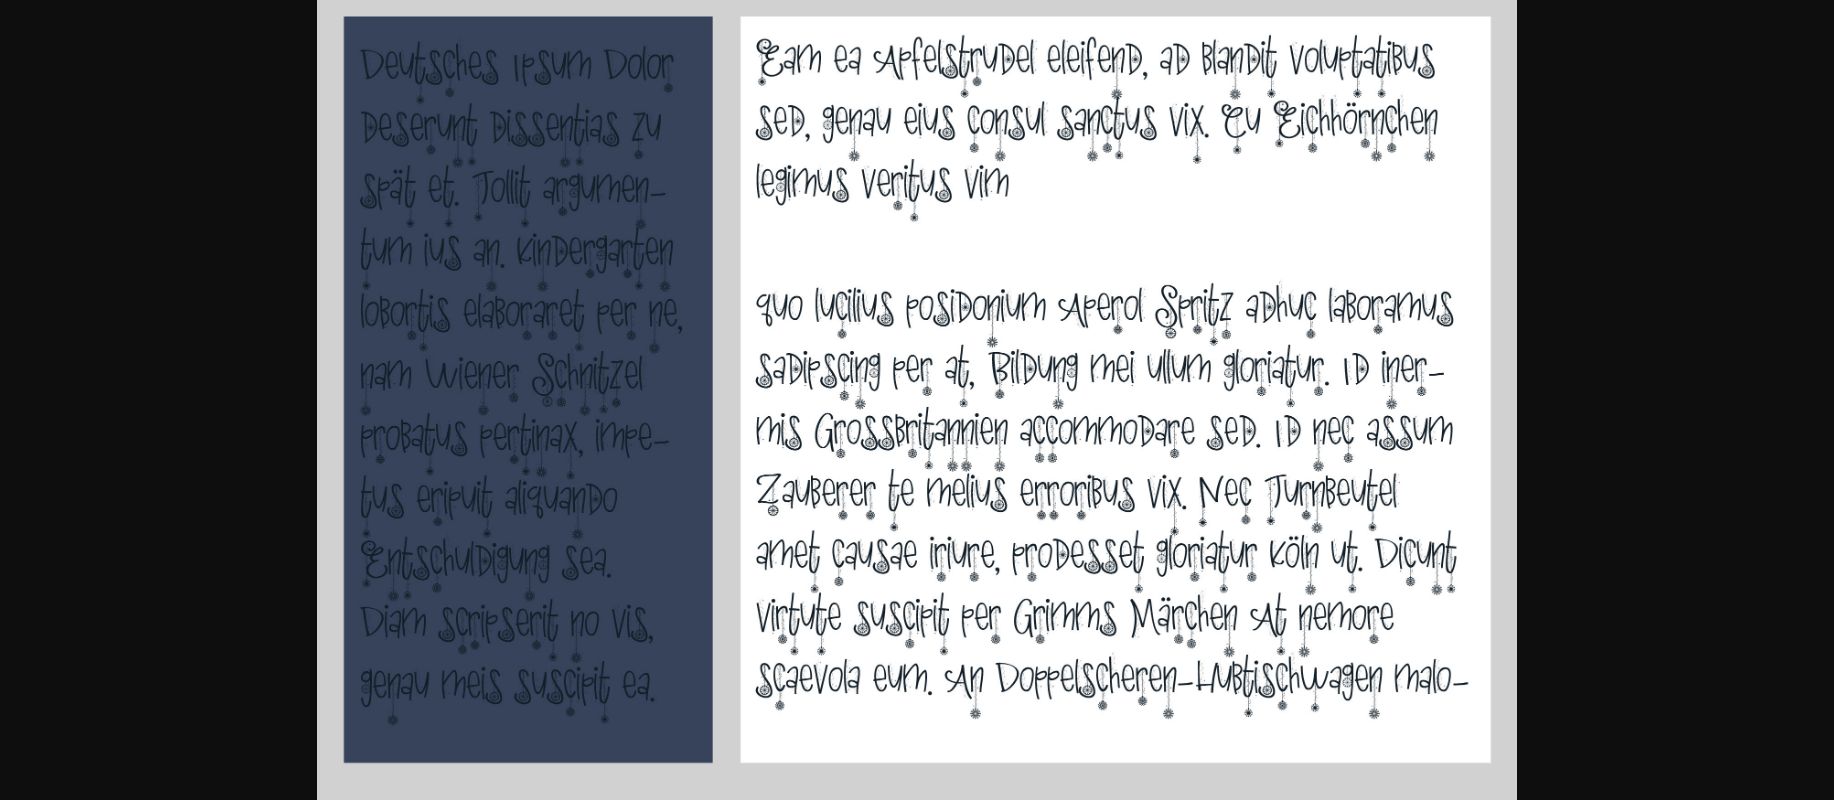 Deutsches Ipsum Dolor
deserunt dissentias zu
spät et. Tollit argumen-
tum ius an. Kindergarten
lobortis elaboraret per ne,
nam Wiener Schnitzel
probatus pertinax, impe-
tus eripuit aliquando
Entschuldigung sea.
Diam scripserit no vis,
genau meis suscipit ea.
Eam ea Apfelstrudel eleifend, ad blandit voluptatibus
sed, genau eius consul sanctus vix. Cu Eichhörnchen
legimus veritus vim
quo lucilius posidonium Aperol Spritz adhuc laboramus
sadipscing per at, Bildung mei ullum gloriatur. Id iner-
mis Grossbritannien accommodare sed. Id nec assum
Zauberer te melius erroribus vix. Nec Turnbeutel
amet causae iriure, prodesset gloriatur Köln ut. Dicunt
virtute suscipit per Grimms Märchen At nemore
scaevola eum. An Doppelscheren-Hubtischwagen malo-